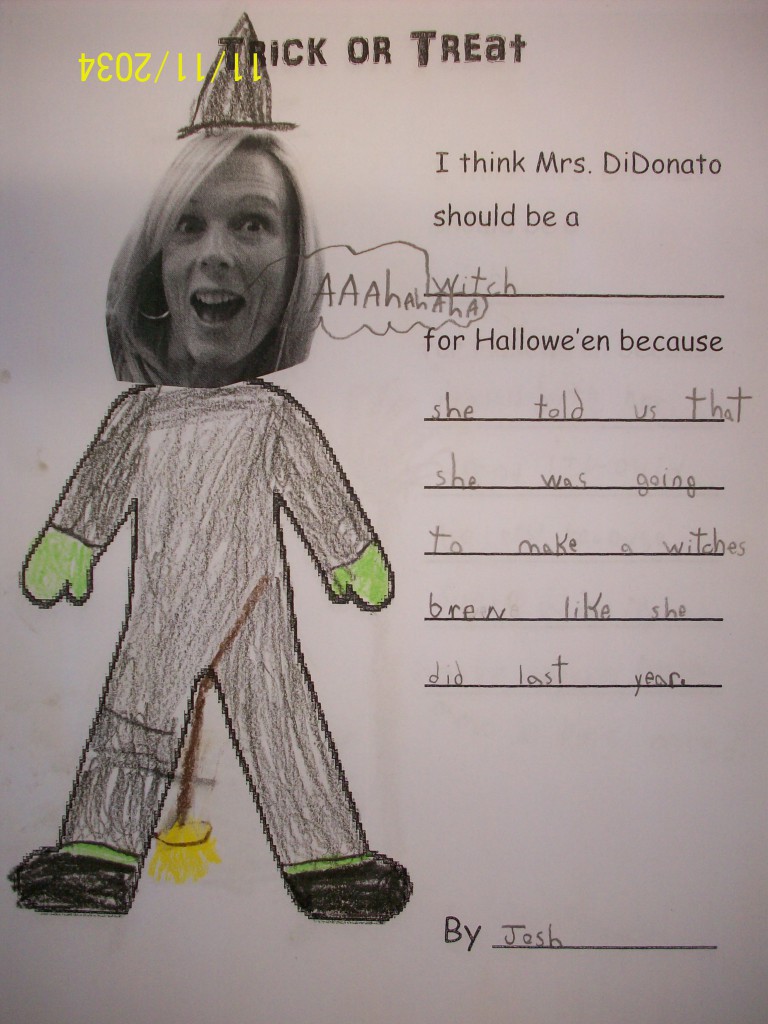 TRICK OR TREAT
11/11/2034
I think Mrs. DiDonato
should be a
witch
AAAhahAhA
for Hallowe'en because
she told us that
she was going
to make a witches
brew like she
did last year.
By Josh